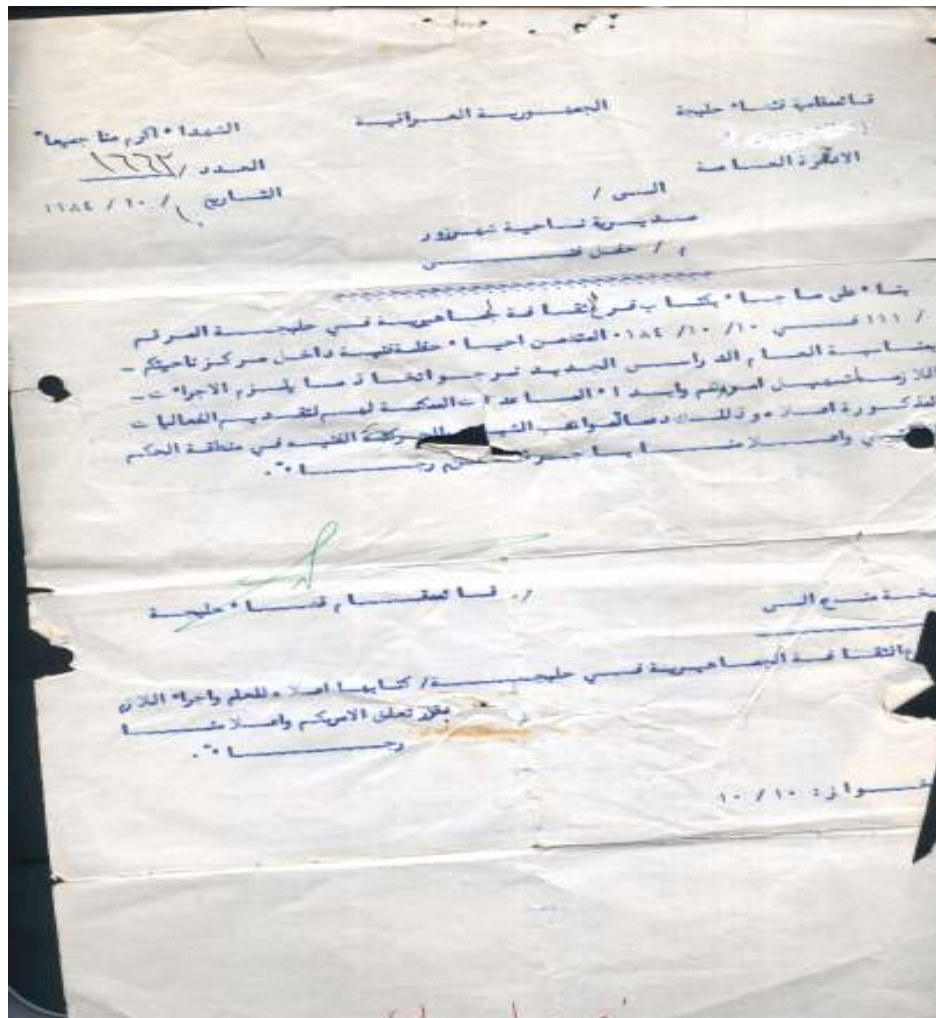 قائمقامية قضاء حلبجة
الجمهورية العراقية
الشهداء اكرم منا جميعا"
العدد / ١٦٦٢
التاريخ ١٠ / ١٠ / ١٩٨٤
الى /
مديرية ناحية شهرزور
م / حفل فني
بناء على ما جاء بكتاب فرع الثقافة الجماهيرية في حلبجة المرقم
/ ١١١ في ١٠ /١٠ /٩٨٤ المتضمن احياء حفلة فنية داخل مركز ناحيتكم -
بمناسبة العام الدراسي الجديد نرجو اتخاذ ما يلزم الاجراءات -
اللازمة لتسهيل امورهم وابداء المساعدات الممكنة لهم لتقديم الفعاليات
المذكورة اعلاه وذلك دعما لمواهب الفنيه في منطقة الحكم
واعلامنا رجاء".
م. قائمقام قضاء حلبجة
نسخة منه الى
فرع الثقافة الجماهيرية في حلبجة / كتابها اعلاه للعلم واجراء اللازم
بقدر تعلق الامر بكم واعلامنا
رجاء".
١٠ / ١٠